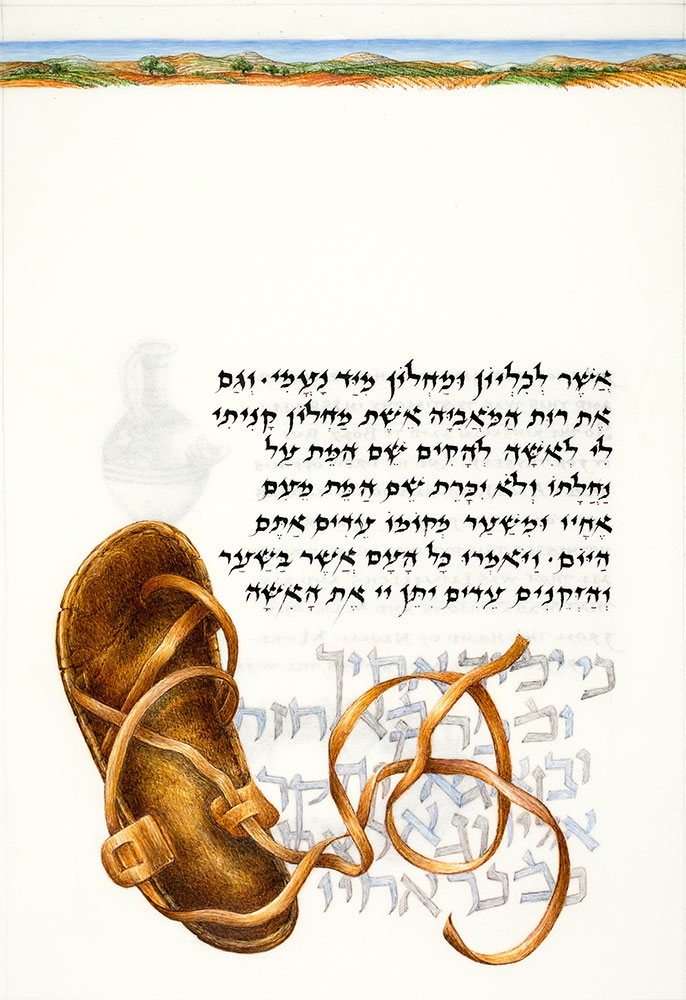 אֲשֶׁר לְכִלְיוֹן וּמַחְלוֹן מִיַּד נָעֳמִי· וְגַם
אֶת רוּת הַמֹּאֲבִיָּה אֵשֶׁת מַחְלוֹן קָנִיתִי
לִי לְאִשָּׁה לְהָקִים שֵׁם הַמֵּת עַל
נַחֲלָתוֹ וְלֹא יִכָּרֵת שֵׁם הַמֵּת מֵעִם
אֶחָיו וּמִשַּׁעַר מְקוֹמוֹ עֵדִים אַתֶּם
הַיּוֹם· וַיֹּאמְרוּ כָּל הָעָם אֲשֶׁר בַּשַּׁעַר
וְהַזְּקֵנִים עֵדִים יִתֵּן יי אֶת הָאִשָּׁה
כי ימוך אחיך
ומכר
ובא
אליו וגאל
ממכר אחיו